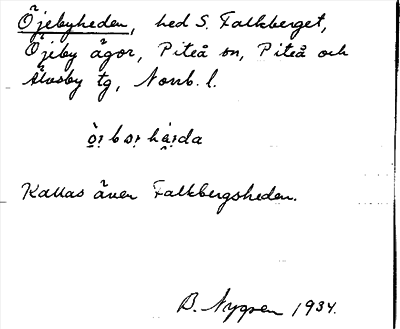 Öjebyheden, hed S. Falkberget,
Öjeby ägor, Piteå sn, Piteå och
Älvsby tg, Norrb. l.
Kallas även Falkbergsheden.
B. Nygren 1934.